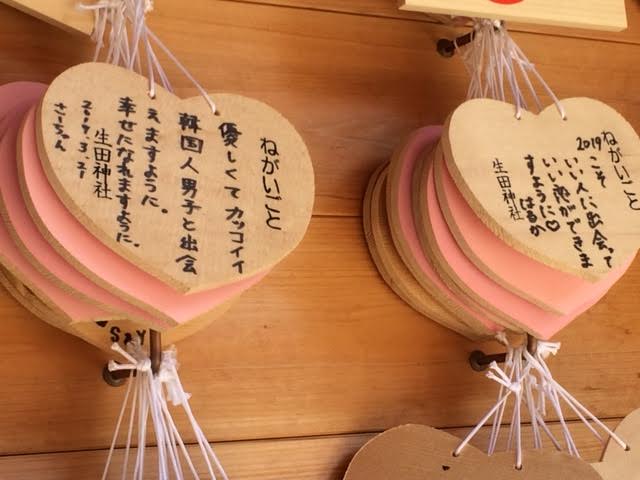 ねがいごと
優しくてカッコイイ
韓国人男子と出会
えますように。
幸せになれますように。
生田神社
2019.3.21
さーちゃん
S&Y
ねがいごと
2019こそ
いい人に出会って
いい恋ができま
すように♡
はるか
生田神社